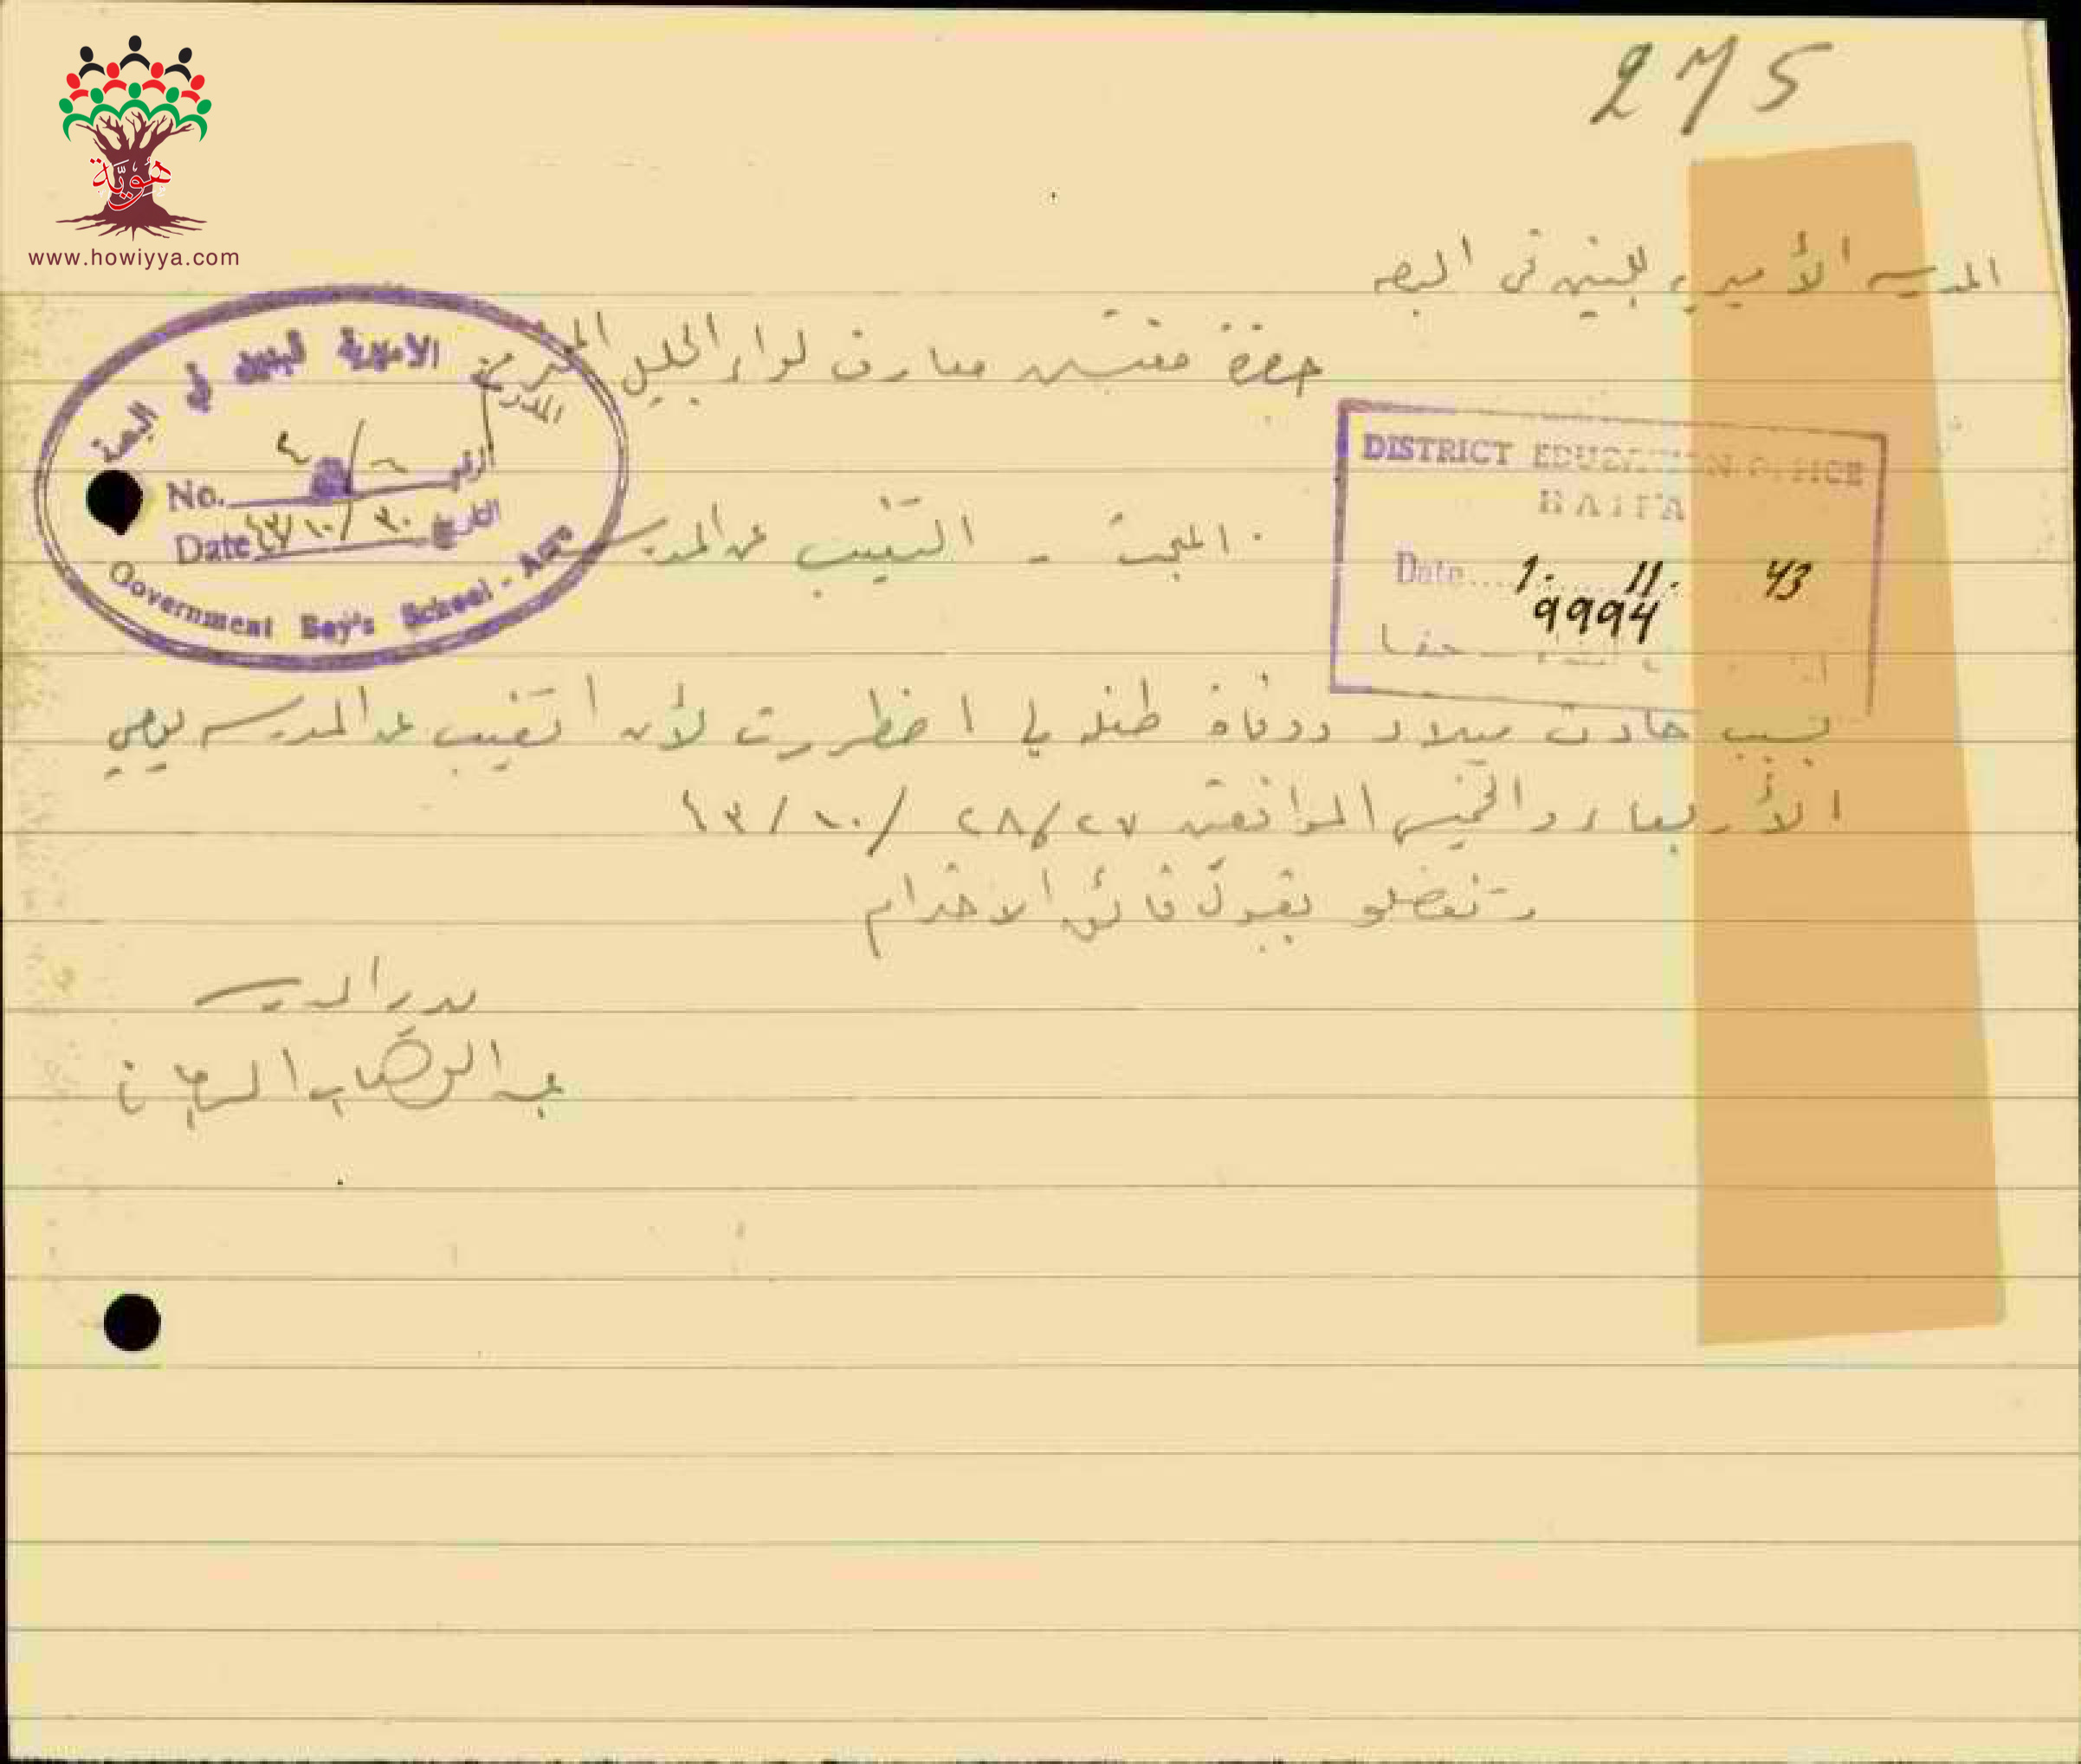 275
هوية
www.howiyya.com
المدرسه الأميريه للبنين في البصه
حضرة مفتش معارف لواء الجليل المحترم
المدرسة الاميرية للبنين في البصة
No. ٤/٦ الرقم
Date ٤٣/١٠/٣٠ التاريخ
Government Boy's School -
DISTRICT EDUCATION OFFICE
HAIFA
Date.... 1. 11. 43
9994
حيفا
المبحث - التغيب عن المدرسه
بسبب حادث ميلاد ووفاة طفله لي اضطررت لأن اتغيب عن المدرسه يومي
الأربعاء والخميس الموافقين ٢٧ و ٢٨ /١٠/ ٤٣
وتفضلو بقبول فائق الاحترام
مدير المدرسه
عبد الوهاب السرحان